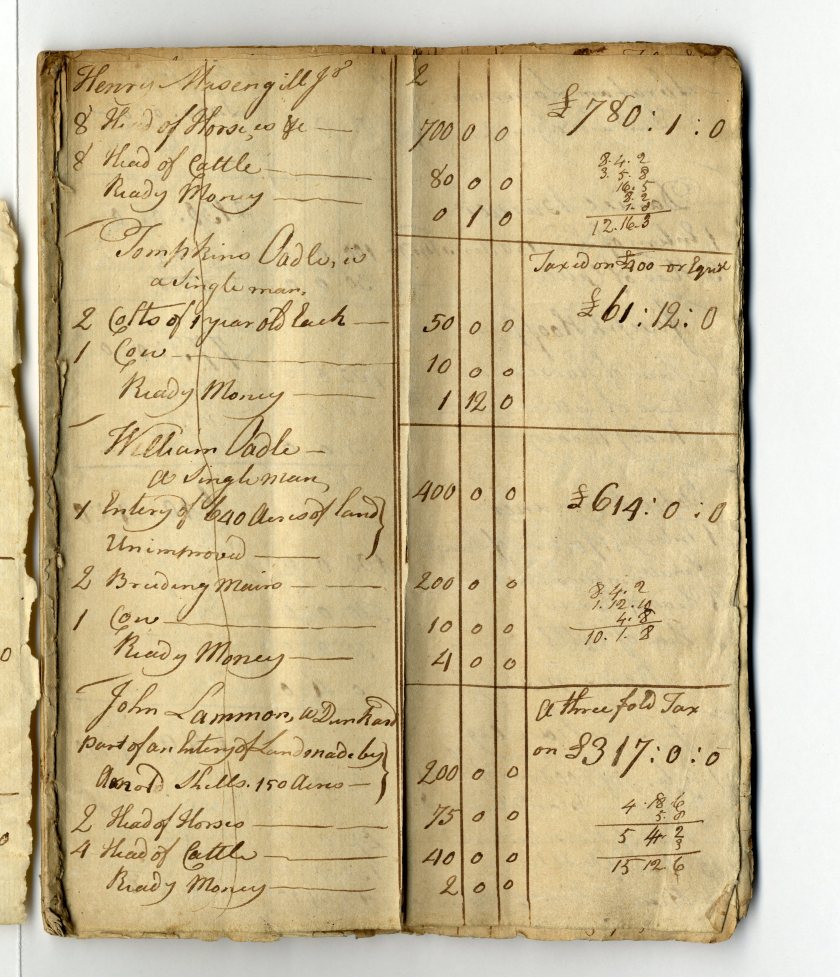 Henry Masengill Jr 2
8 Head of Horse, es &c — 700 0 0 £780:1:0
8 Head of Cattle — 80 0 0
Ready Money — 0 1 0
8.4.2
3.5.8
16.5
8.2
1.8
12.16.3
Tompkins Oadle, is
a Single man, Taxed on £400 or Equil
2 Colts of 1 year old Each — 50 0 0 £61:12:0
1 Cow — 10 0 0
Ready Money — 1 12 0
William Oadle —
a Single man,
1 Entery of 640 Acres of land} 400 0 0 £614:0:0
Unimproved —
2 Breeding Mairs — 200 0 0
1 Cow — 10 0 0
Ready Money — 4 0 0
8.4.2
1.12.10
4.8
10.1.8
John Lammon, a Dunkard A three fold Tax
part of an Entery of Land made by} on £317:0:0
Arnold Shells. 150 Acres — 200 0 0
2 Head of Horses — 75 0 0
4 Head of Cattle — 40 0 0
Ready Money — 2 0 0
4 18 6
5 8
5 4 2
3
15 12 6